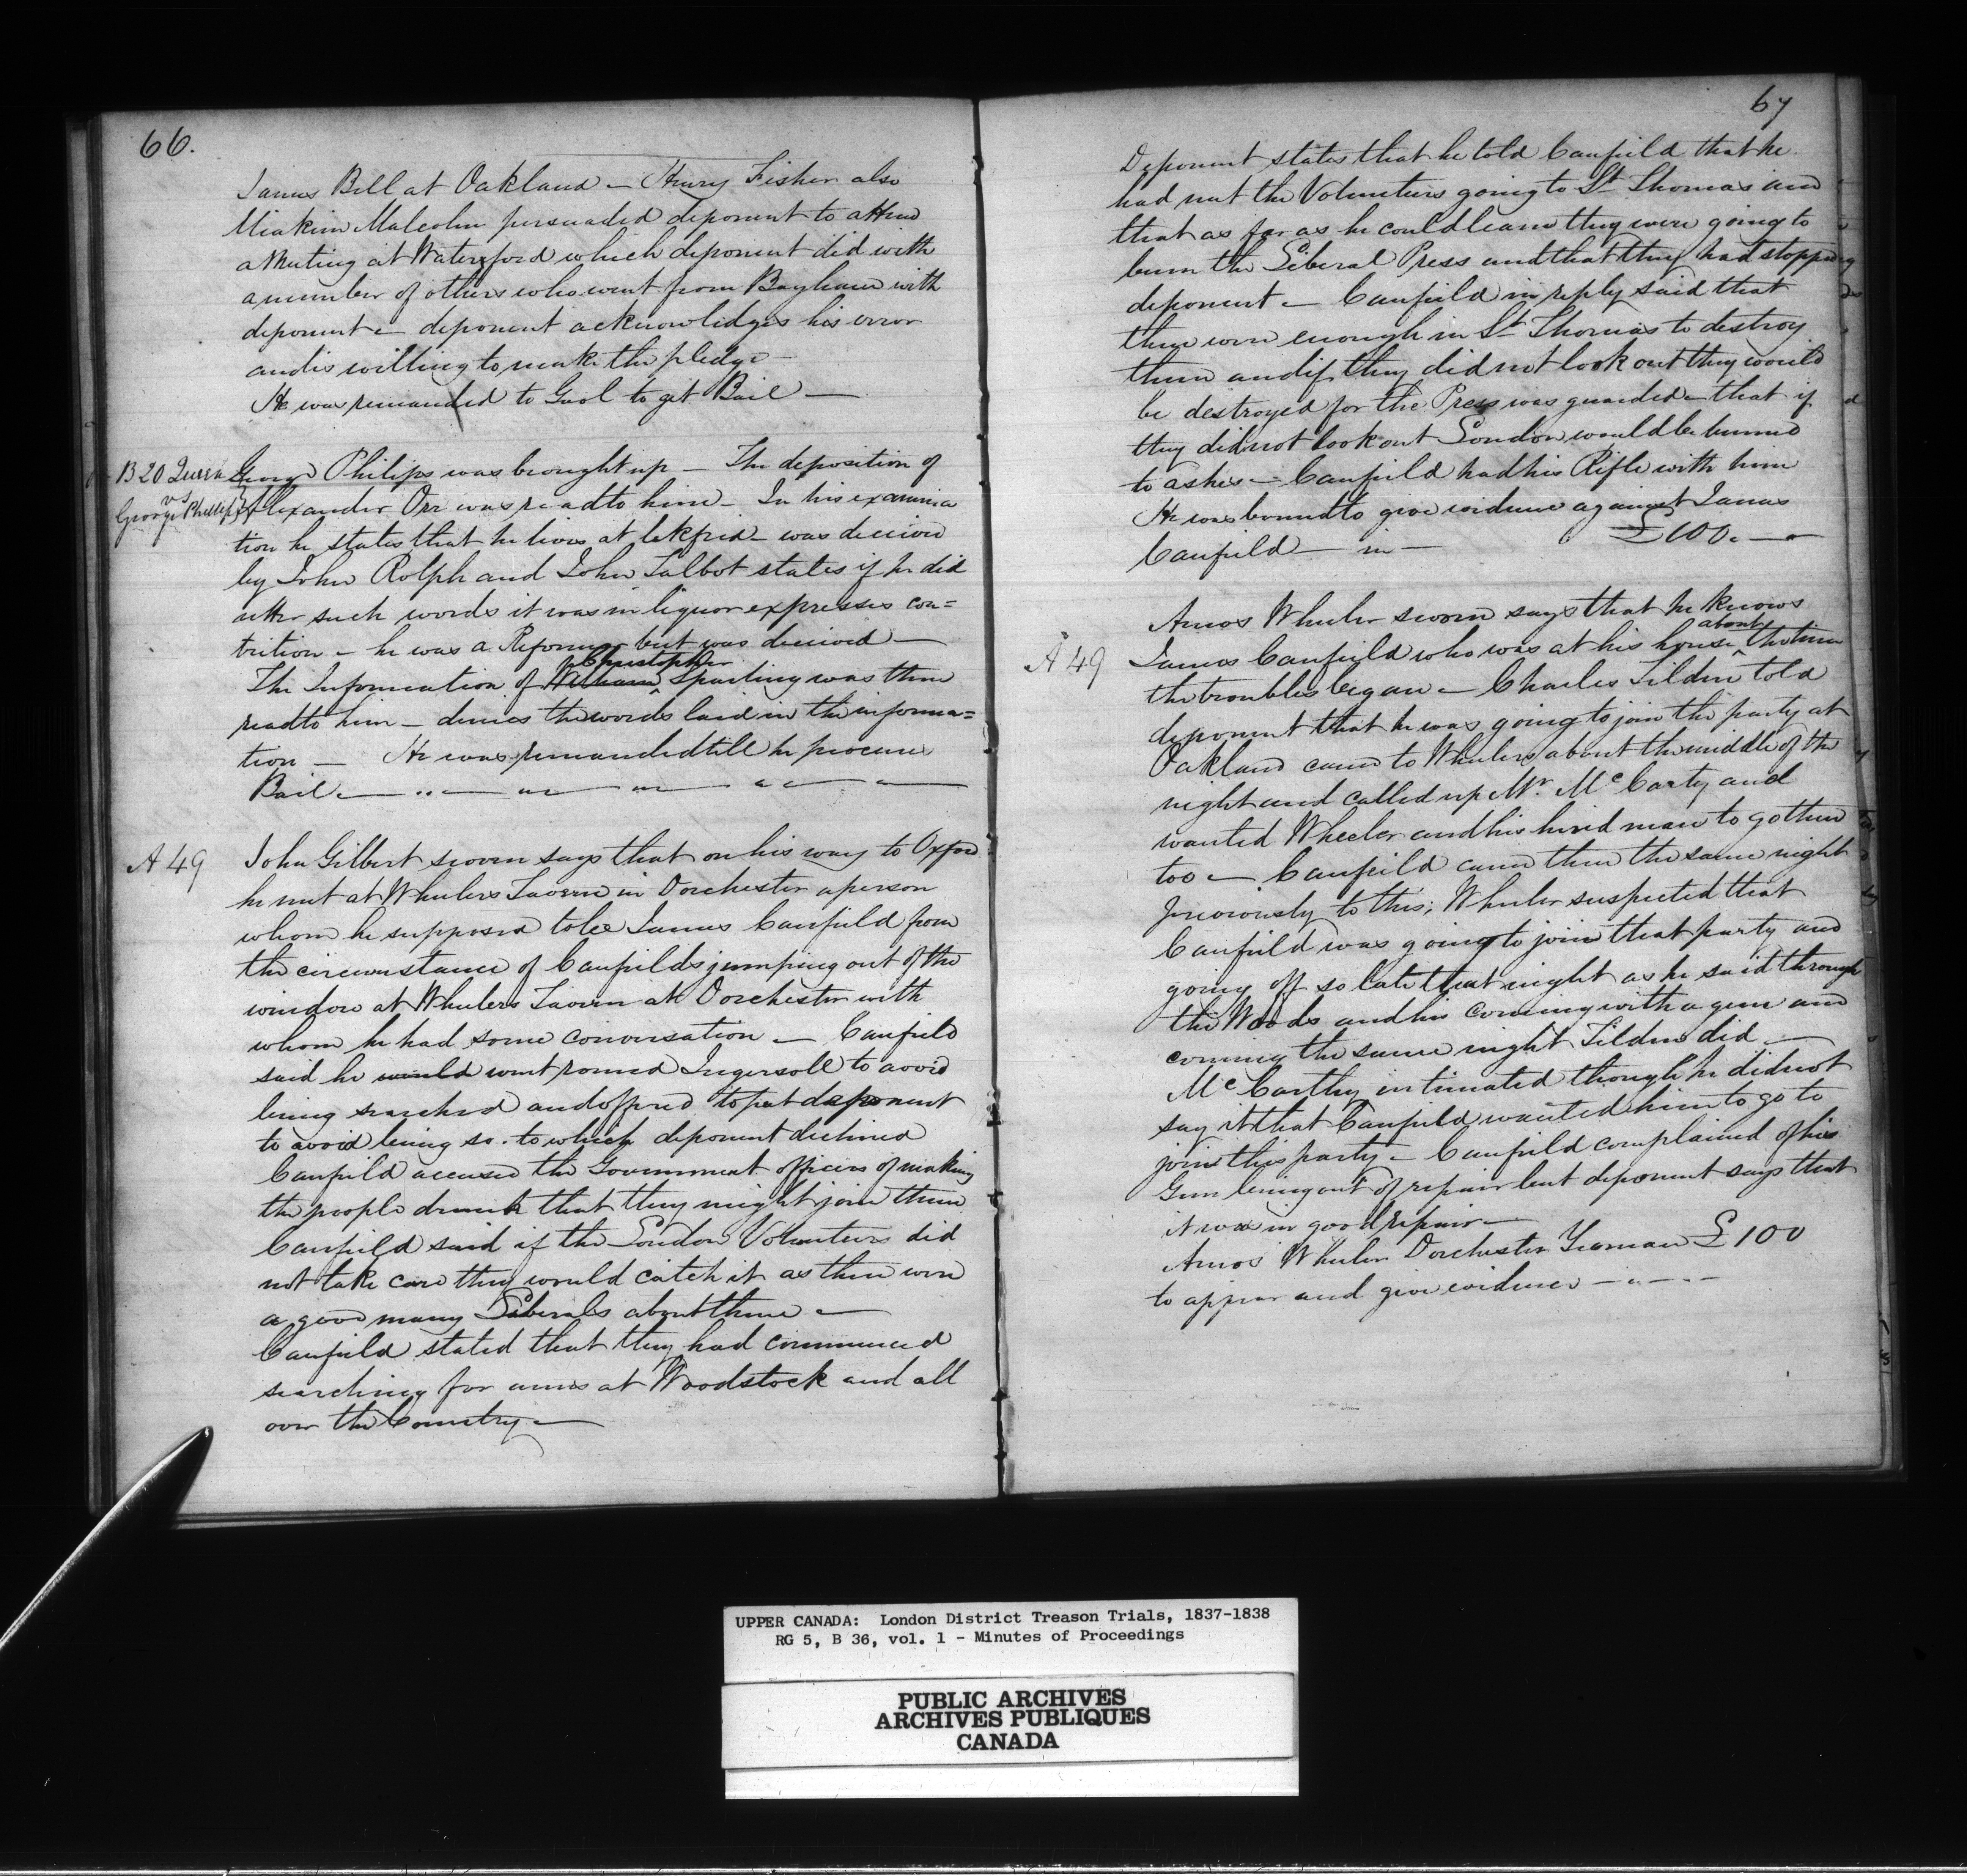 66.
James Bell at Oakland – Henry Fisher also
Miakim Malcolm persuaded deponent to attend
a Meeting at Waterford which deponent did with
a number of others who went from Bayham with
deponent – deponent acknowledges his error
and is willing to make the pledge –
He was remanded to Gaol to get Bail –
B 20 Queen
vs
George Phillips
George Philips was brought up – The deposition of
Alexander Orr was read to him – In his examina
tion he states that he lives at – was deceived
by John Rolph and John Talbot states if he did
utter such words it was in liquor expresses con=
trition – he was a Reformer but was deceived –
Christopher
The Information of William ^ Sparling was then
read to him – denies the words laid in the informa=
tion – He was remanded till he procures
Bail –
A 49
John Gilbert sworn says that on his way to Oxford
he met at Wheelers Tavern in Dorchester a person
whom he supposed to be James Canfield from
the circumstance of Canfields jumping out of the
window at Wheelers Tavern at Dorchester with
whom he had some conversation – Canfield
said he would went round Ingersoll to avoid
being searched and offered to put deponent
to avoid being so. to which deponent declined
Canfield accused the Government officers of making
the people drunk that they might join them
Canfield said if the London Volunteers did
not take care they would catch it as there were
a good many Liberals about there –
Canfield stated that they had commenced
searching for arms at Woodstock and all
over the Country –
67
Deponent states that he told Canfield that he
had met the Volunteers going to St Thomas and
that as far as he could learn they were going to
burn the Liberal Press and that they had stopped
deponent – Canfield in reply said that
there were enough in St Thomas to destroy
them and if they did not look out they would
be destroyed for the Press was guarded – that if
they did not look out London would be burned
to ashes – Canfield had his Rifle with him
He was bound to give evidence against James
Canfield – in – £100. –
A 49
Amos Wheeler sworn says that he knows
about
James Canfield who was at his house ^ the time
the troubles began – Charles Tilden told
deponent that he was going to join the party at
Oakland came to Wheelers about the middle of the
night and called up Mr. McCarty and
wanted Wheeler and his hired man to go there
too – Canfield came there the same night
previously to this; Wheeler suspected that
Canfield was going to join that party and
going off so late that night as he said through
the Woods and his coming with a gun and
coming the same night Tilden did –
McCarthy intimated though he did not
say it that Canfield wanted him to go to
join this party – Canfield complained of his
Gun being out of repair but deponent says that
it was in good repair –
Amos Wheeler Dorchester Yeoman £100
to appear and give evidence –
UPPER CANADA: London District Treason Trials, 1837-1838
RG 5, B 36, vol. 1 - Minutes of Proceedings
PUBLIC ARCHIVES
ARCHIVES PUBLIQUES
CANADA